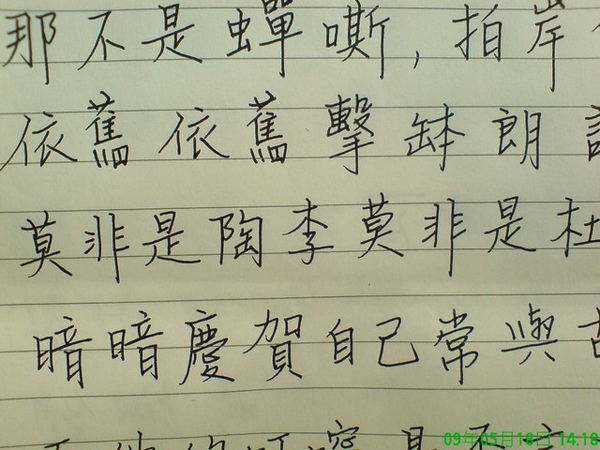 那不是蟬嘶，拍岸
依舊依舊擊缽朗
莫非是陶李莫非是杜
暗暗慶賀自己常與
09年05月18日 14:18